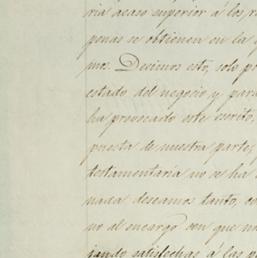 ria acaso superior á los re
penas se obtienen en la
mos. Decimos esto, solo po
estado del negocio y para
ha provocado este escrito,
puesta de nuestra parte,
testamentaria no se ha
nada deseamos tanto, co
no al encargo con que no
jando satisfechas á las pa